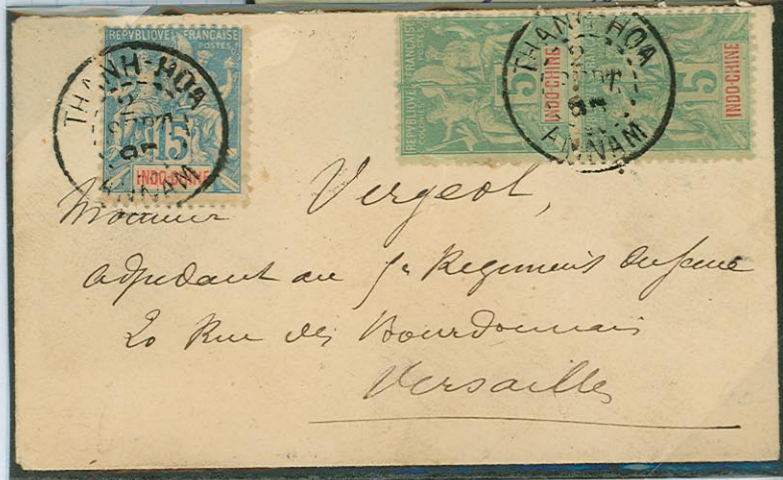 REPVBLIQVE FRANÇAISE
POSTES
15
INDO-CHINE
THANH-HOA
ANNAM
REPVBLIQVE FRANÇAISE
COLONIES
5
INDO-CHINE
5
INDO-CHINE
THANH-HOA
ANNAM
Monsieur Vergeot,
adjudant au 5e Regiment
20 Rue des Bourdonnais
Versailles